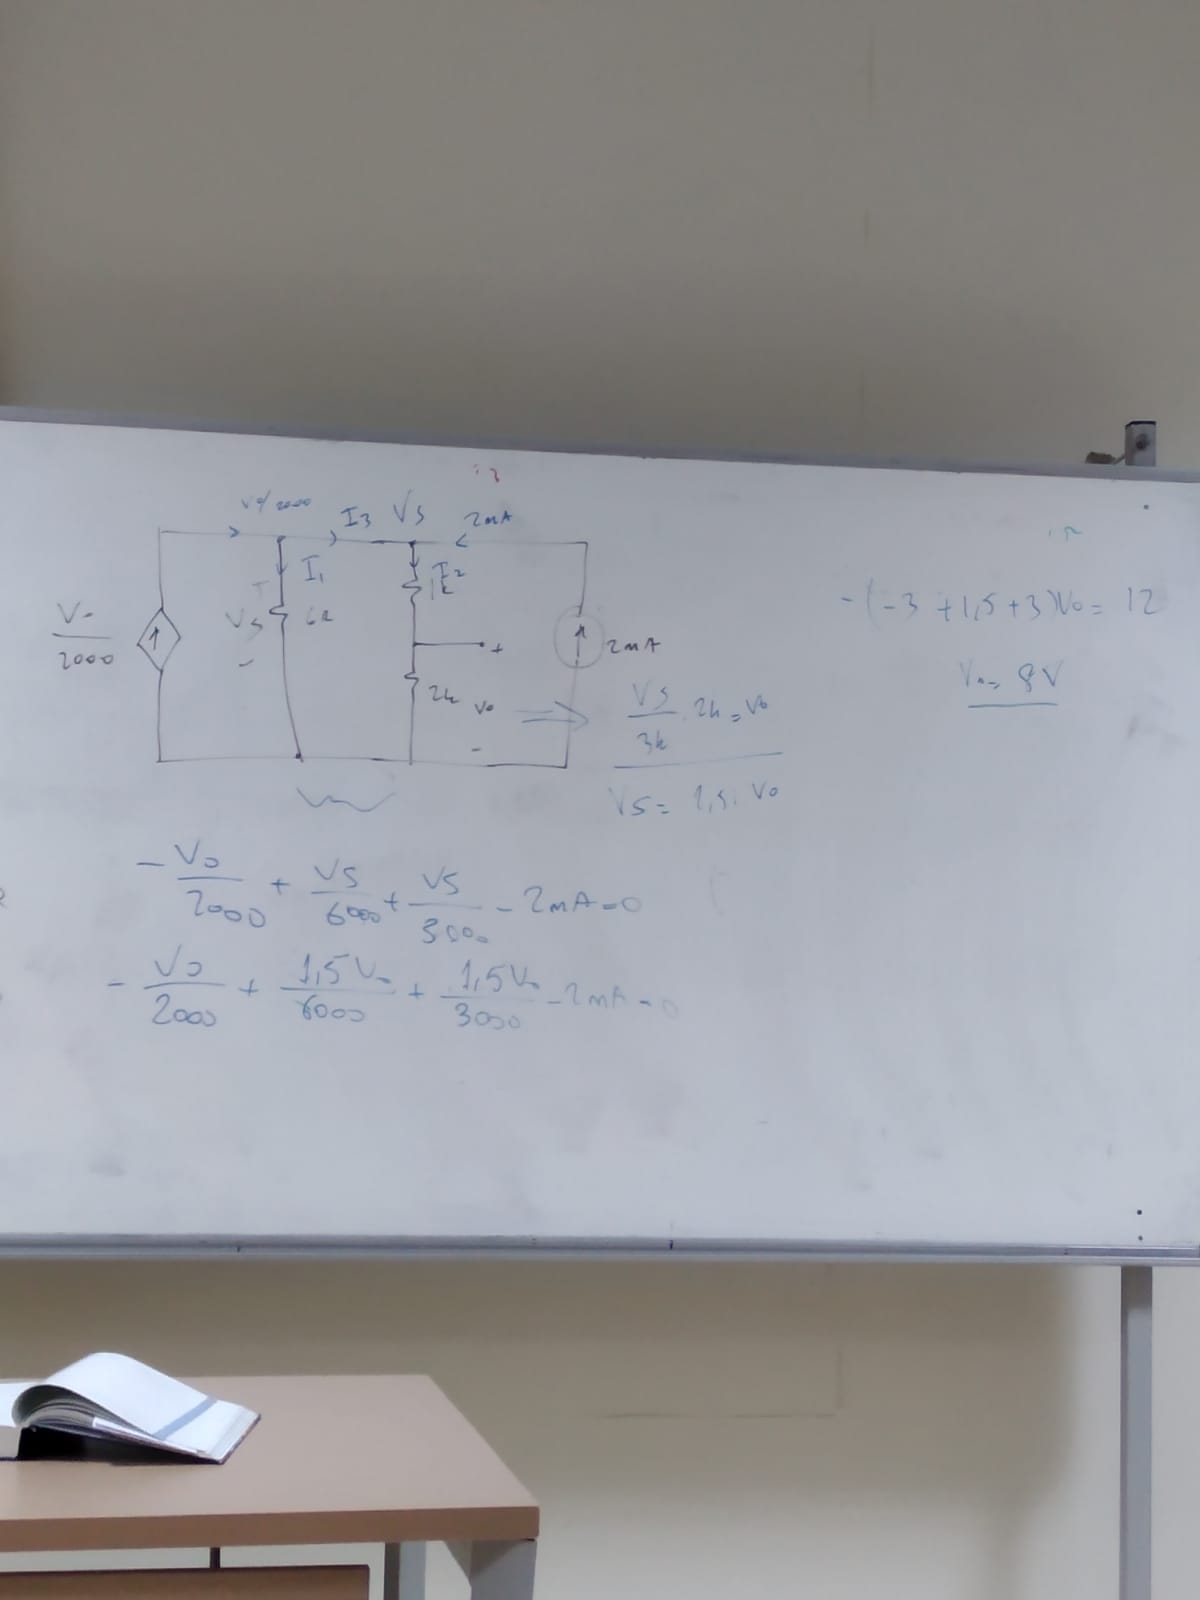 Vo/2000 I3 VS 2mA
I1 I2
1k
Vo/2000 VS 6k 2mA
+
2k Vo
-
VS/3k . 2k = Vo
VS = 1,5 . Vo
- Vo/2000 + VS/6000 + VS/3000 - 2mA = 0
- Vo/2000 + 1,5Vo/6000 + 1,5Vo/3000 - 2mA = 0
-(-3 + 1,5 + 3)Vo = 12
Vo = 8V